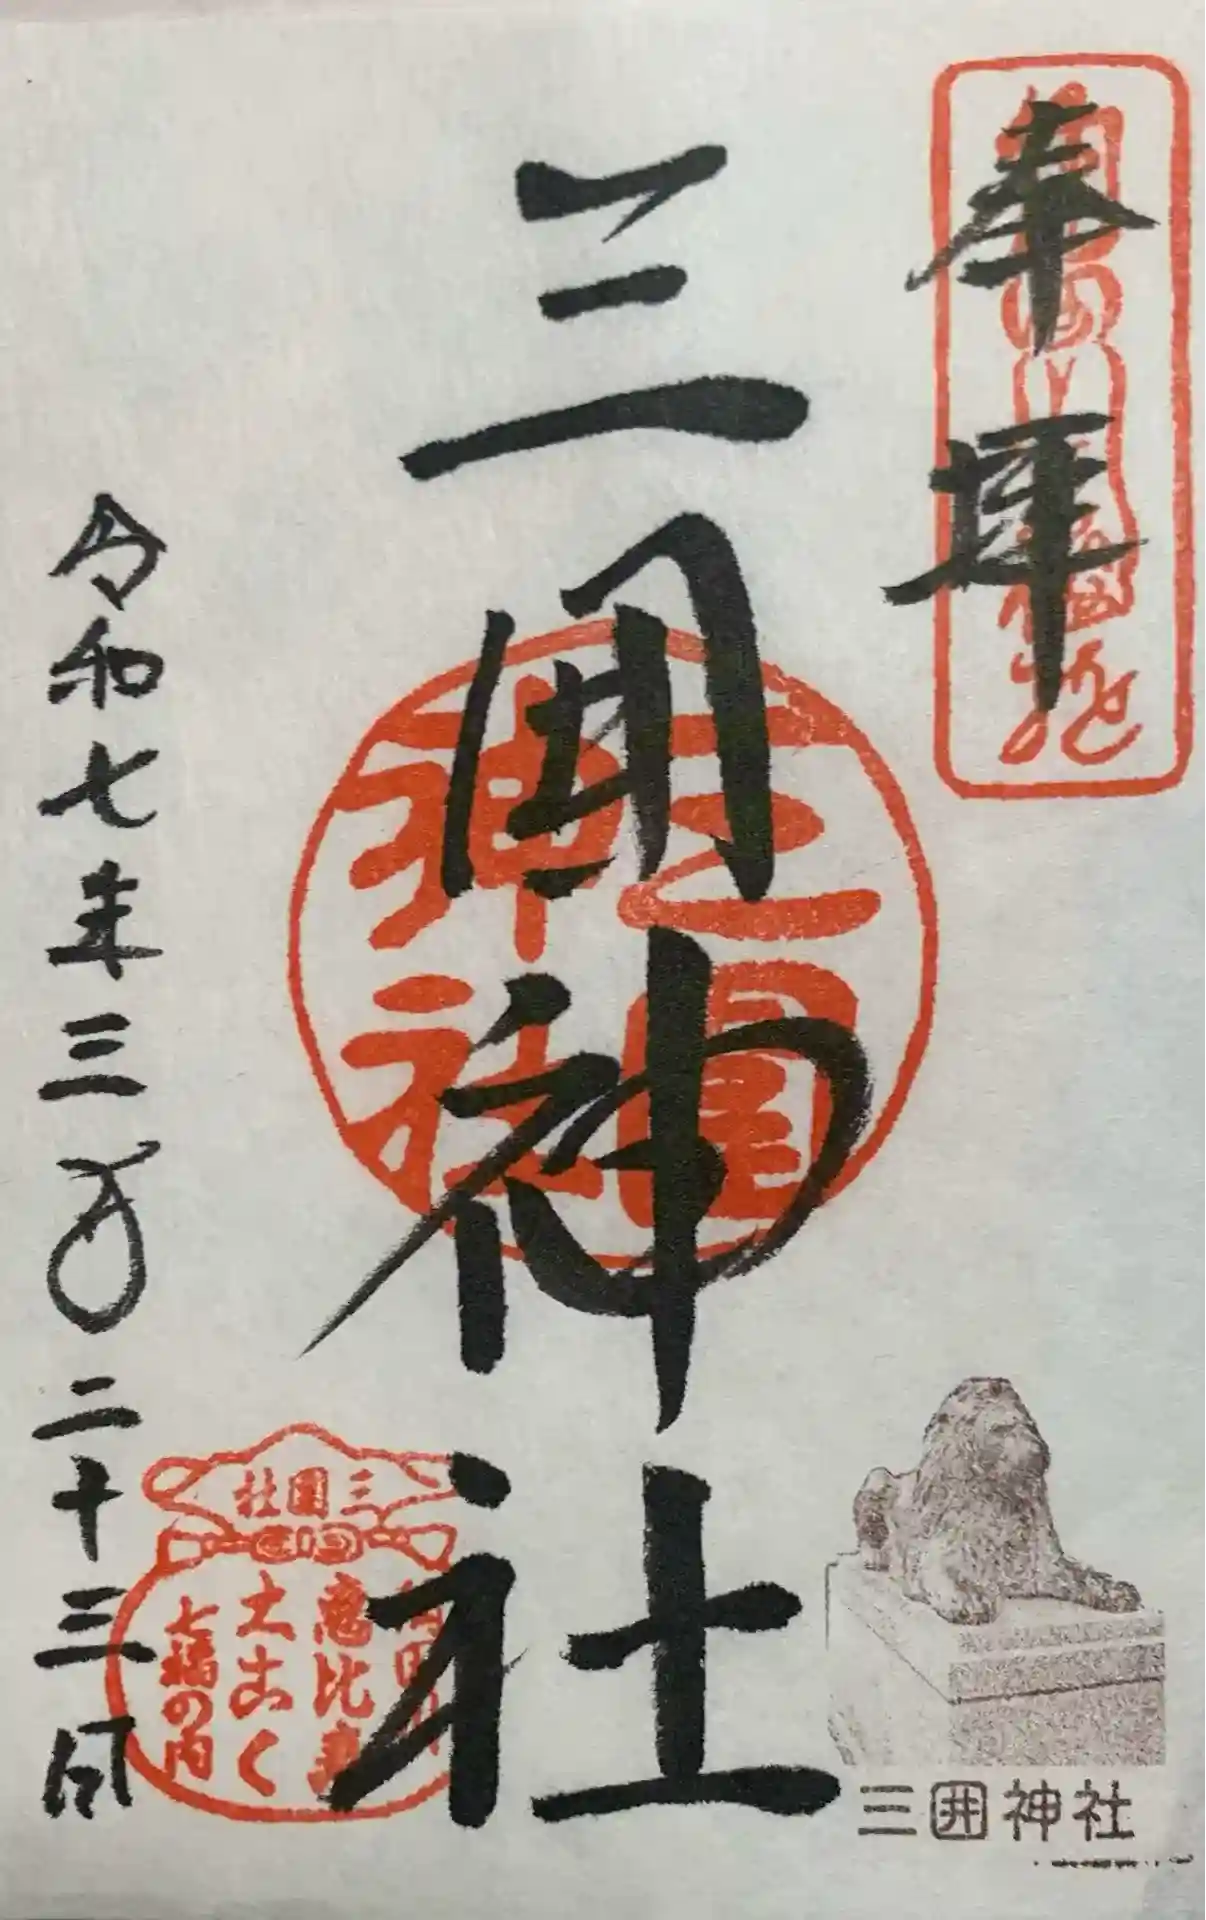 奉拝
三囲神社
三囲神社
令和七年三月二十三日
三囲社
恵比寿
大こく
七福の内
三囲神社